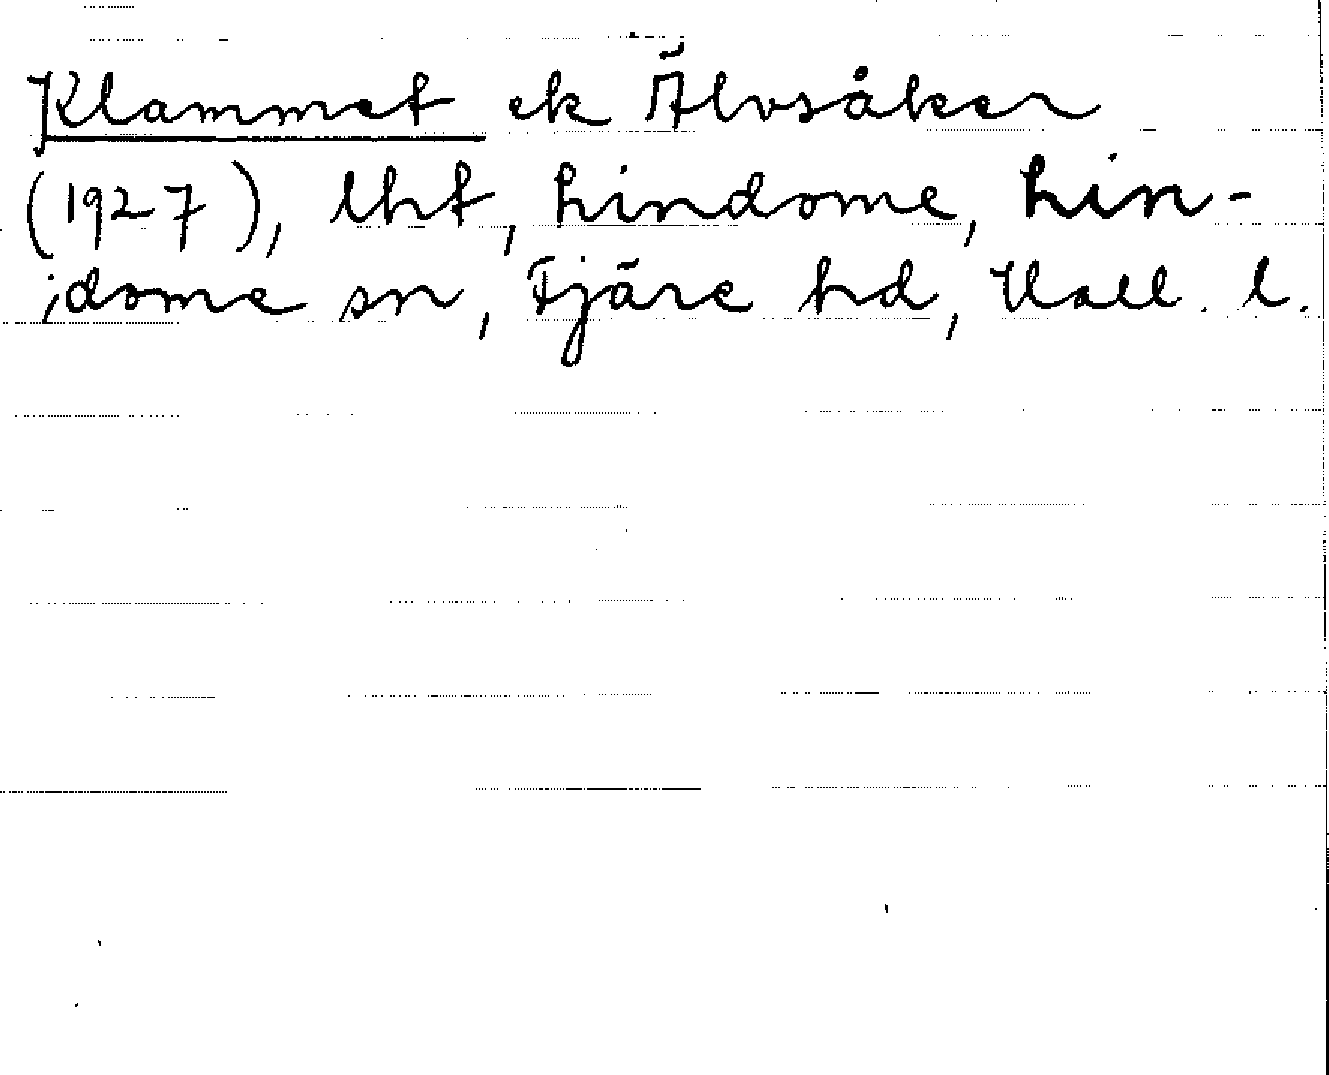 Klammet ek Älvsåker
(1927), lht, Lindome, Lin-
dome sn, Fjäre hd, Hall. l.